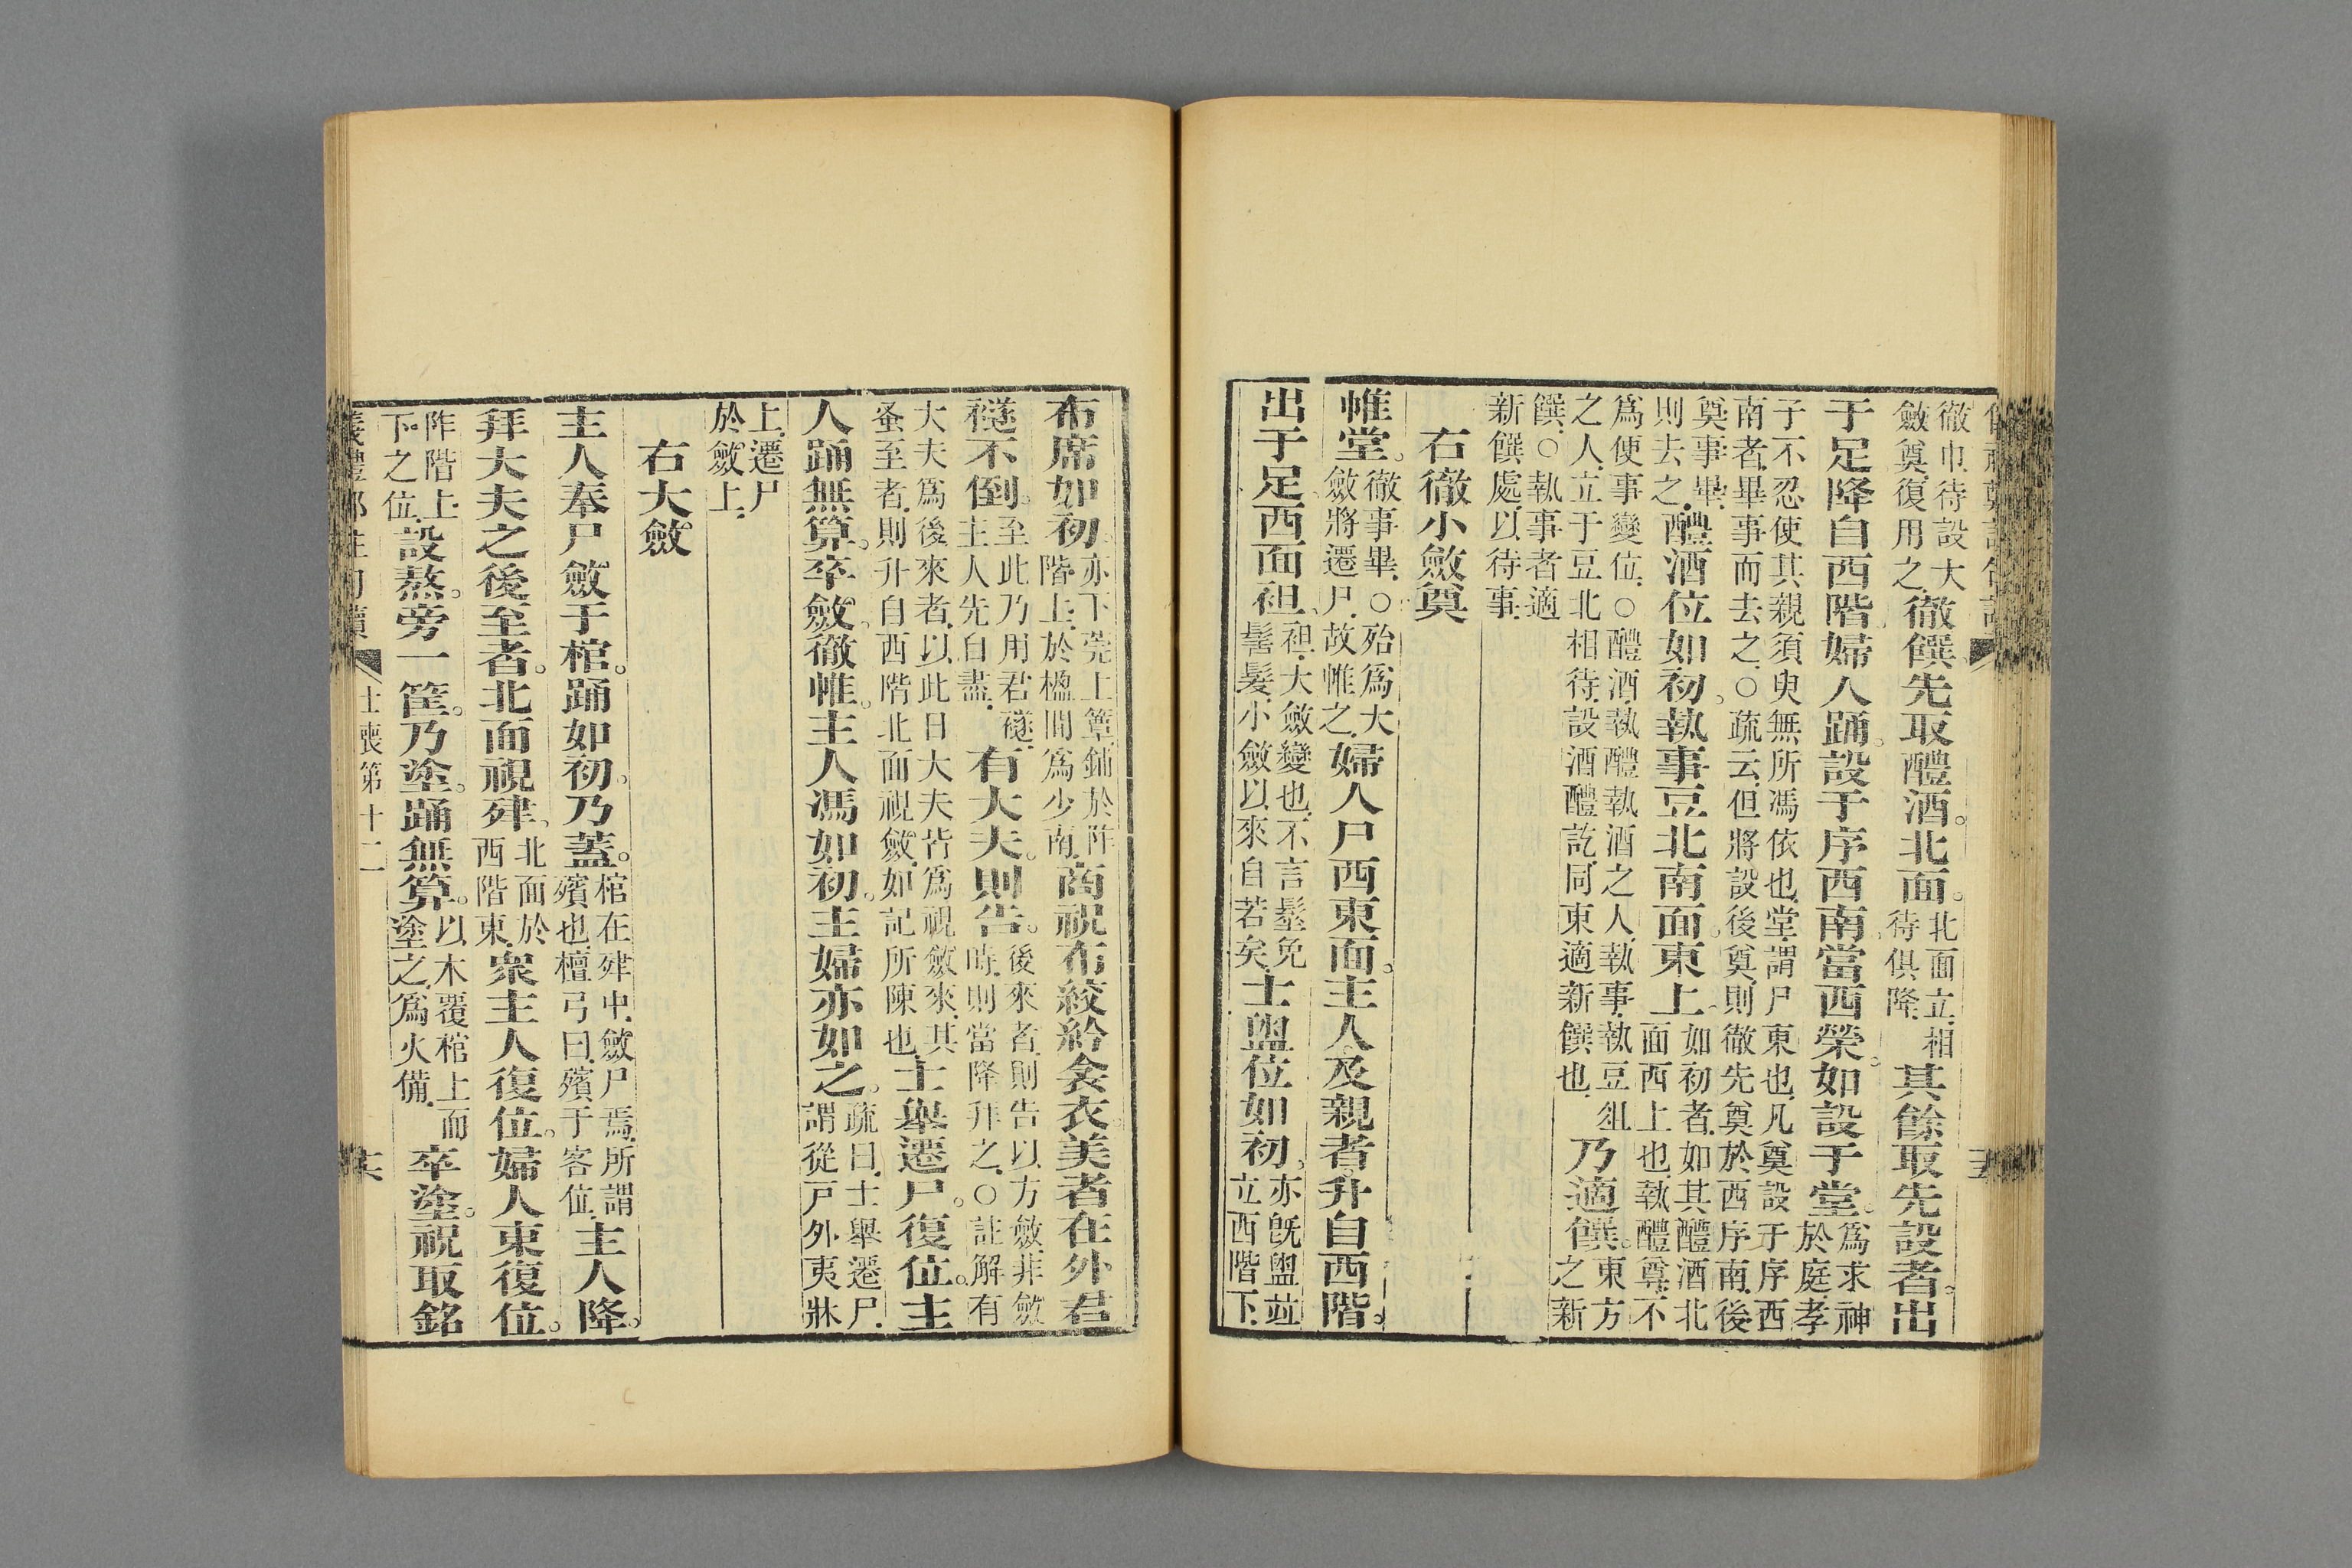 徹巾待設大
斂奠復用之
徹饌先取醴酒。北面。
北面立相
待俱降
其餘取先設者。出
于足降自西階婦人踊。設于序西南當西榮如設于堂。
爲求神
於庭孝
子不忍使其親須臾無所馮依也堂謂尸東也凡奠設于序西
南者畢事而去之○疏云但將設後奠則徹先奠於西序南後
奠事畢
則去之
醴酒位如初。執事豆北南面。東上。
如初者如其醴酒北
面西上也執醴尊不
爲便事變位○醴酒執醴執酒之人執事執豆俎
之人立于豆北相待設酒醴訖同東適新饌也
乃適饌。
東方
之新
饌○執事者適
新饌處以待事
右徹小斂奠
帷堂。
徹事畢○殆爲大
斂將遷尸故帷之
婦人尸西東面。主人及親者升自西階。
出于足西面袒。
袒大斂變也不言髽免
髺髮小斂以來自若矣
士盥位如初。
亦旣盥竝
立西階下
布席如初
亦下莞上簟鋪於阼
階上於楹間爲少南
商祝布絞紟衾衣美者在外君
襚不倒。
至此乃用君襚
主人先自盡
有大夫。則告。
後來者則告以方斂非斂
時則當降拜之○註解有
大夫爲後來者以此日大夫皆爲視斂來其
蚤至者則升自西階北面視斂如記所陳也
士舉遷尸。復位。主
人踊無算。卒斂。徹帷。主人馮如初。主婦亦如之。
疏曰士舉遷尸
謂從戸外夷牀
上遷尸
於斂上
右大斂
主人奉尸斂于棺。踊如初。乃蓋。
棺在肂中斂尸焉所謂
殯也檀弓曰殯于客位
主人降。
拜大夫之後至者。北面視肂
北面於
西階東
衆主人復位。婦人東復位。
阼階上
下之位
設熬。旁一筐。乃塗。踊無算。
以木覆棺上而
塗之爲火備
卒塗。祝取銘
士喪第十二